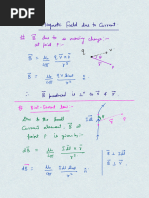 Magnetic Field due to Current
# B⃗ due to a moving charge :-
at point P -
q
v
θ
r
P
B⃗ = μ₀/4π q v⃗ × r⃗ / r³
B = μ₀/4π q v sinθ / r²
∴ B⃗ produced is ⊥ʳ to v⃗ & r⃗
# Biot-Savart law :-
Due to the field
Current element, B⃗ at
point P -
dB⃗ = μ₀/4π I dl⃗ × r⃗ / r³
dB = μ₀/4π I dl sinθ / r²